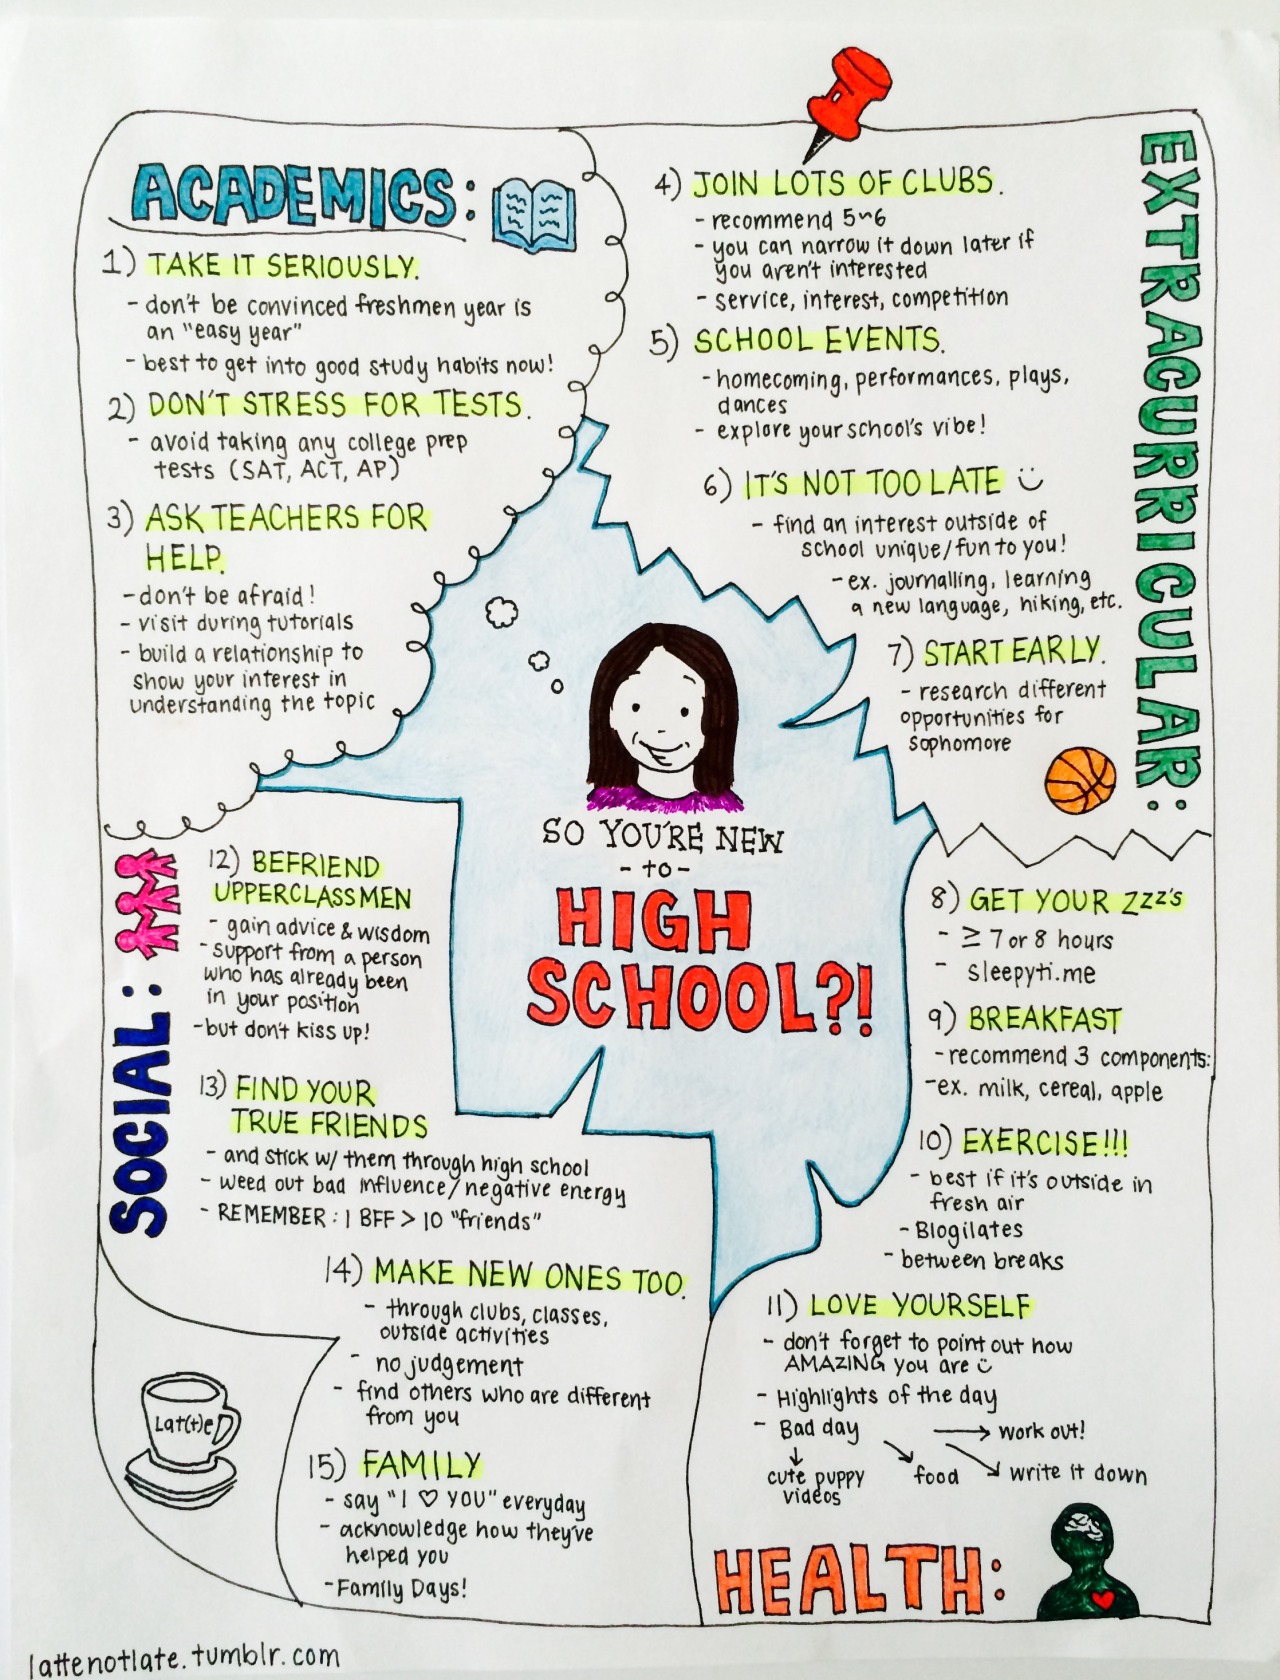 ACADEMICS:
1) TAKE IT SERIOUSLY.
- don't be convinced freshmen year is
an "easy year"
- best to get into good study habits now!
2) DON'T STRESS FOR TESTS.
- avoid taking any college prep
tests (SAT, ACT, AP)
3) ASK TEACHERS FOR
HELP.
- don't be afraid!
- visit during tutorials
- build a relationship to
show your interest in
understanding the topic
EXTRACURRICULAR:
4) JOIN LOTS OF CLUBS.
- recommend 5~6
- you can narrow it down later if
you aren't interested
- service, interest, competition
5) SCHOOL EVENTS.
- homecoming, performances, plays,
dances
- explore your school's vibe!
6) IT'S NOT TOO LATE
- find an interest outside of
school unique/fun to you!
- ex. journalling, learning
a new language, hiking, etc.
7) START EARLY.
- research different
opportunities for
sophomore
SO YOU'RE NEW
- to -
HIGH
SCHOOL?!
8) GET YOUR Zzz's
- ≥ 7 or 8 hours
- sleepyti.me
9) BREAKFAST
- recommend 3 components:
- ex. milk, cereal, apple
10) EXERCISE!!!
- best if it's outside in
fresh air
- Blogilates
- between breaks
11) LOVE YOURSELF
- don't forget to point out how
AMAZING you are
- Highlights of the day
- Bad day → work out!
↓ cute puppy ↘ food ↘ write it down
videos
HEALTH:
SOCIAL:
12) BEFRIEND
UPPERCLASSMEN
- gain advice & wisdom
- support from a person
who has already been
in your position
- but don't kiss up!
13) FIND YOUR
TRUE FRIENDS
- and stick w/ them through high school
- weed out bad influence/negative energy
- REMEMBER: 1 BFF > 10 "friends"
14) MAKE NEW ONES TOO.
- through clubs, classes,
outside activities
- no judgement
- find others who are different
from you
15) FAMILY
- say "I ♡ YOU" everyday
- acknowledge how they've
helped you
- Family Days!
Lat(t)e
lattenotlate.tumblr.com